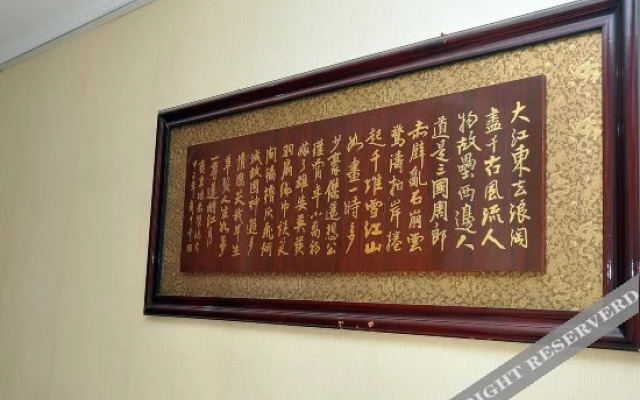 大江東去浪淘
盡千古風流人
物故壘西邊人
道是三國周郎
赤壁亂石崩雲
驚濤拍岸捲
起千堆雪江山
如畫一時多
少豪傑遙想公
瑾當年小喬初
嫁了雄姿英發
羽扇綸巾談笑
間檣櫓灰飛烟
滅故國神遊多
情應笑我早生
華髮人生如夢
一尊還酹江月
RIGHT RESERVERD